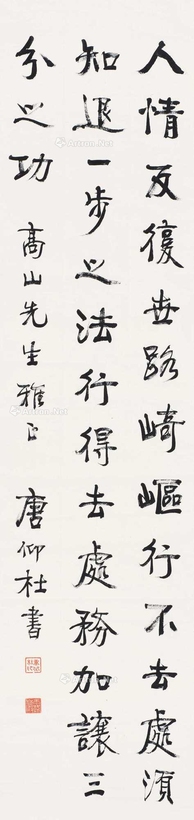 人情反復世路崎嶇行不去處須
知退一步之法行得去處務加讓三
分之功
高山先生雅正
唐仰杜書